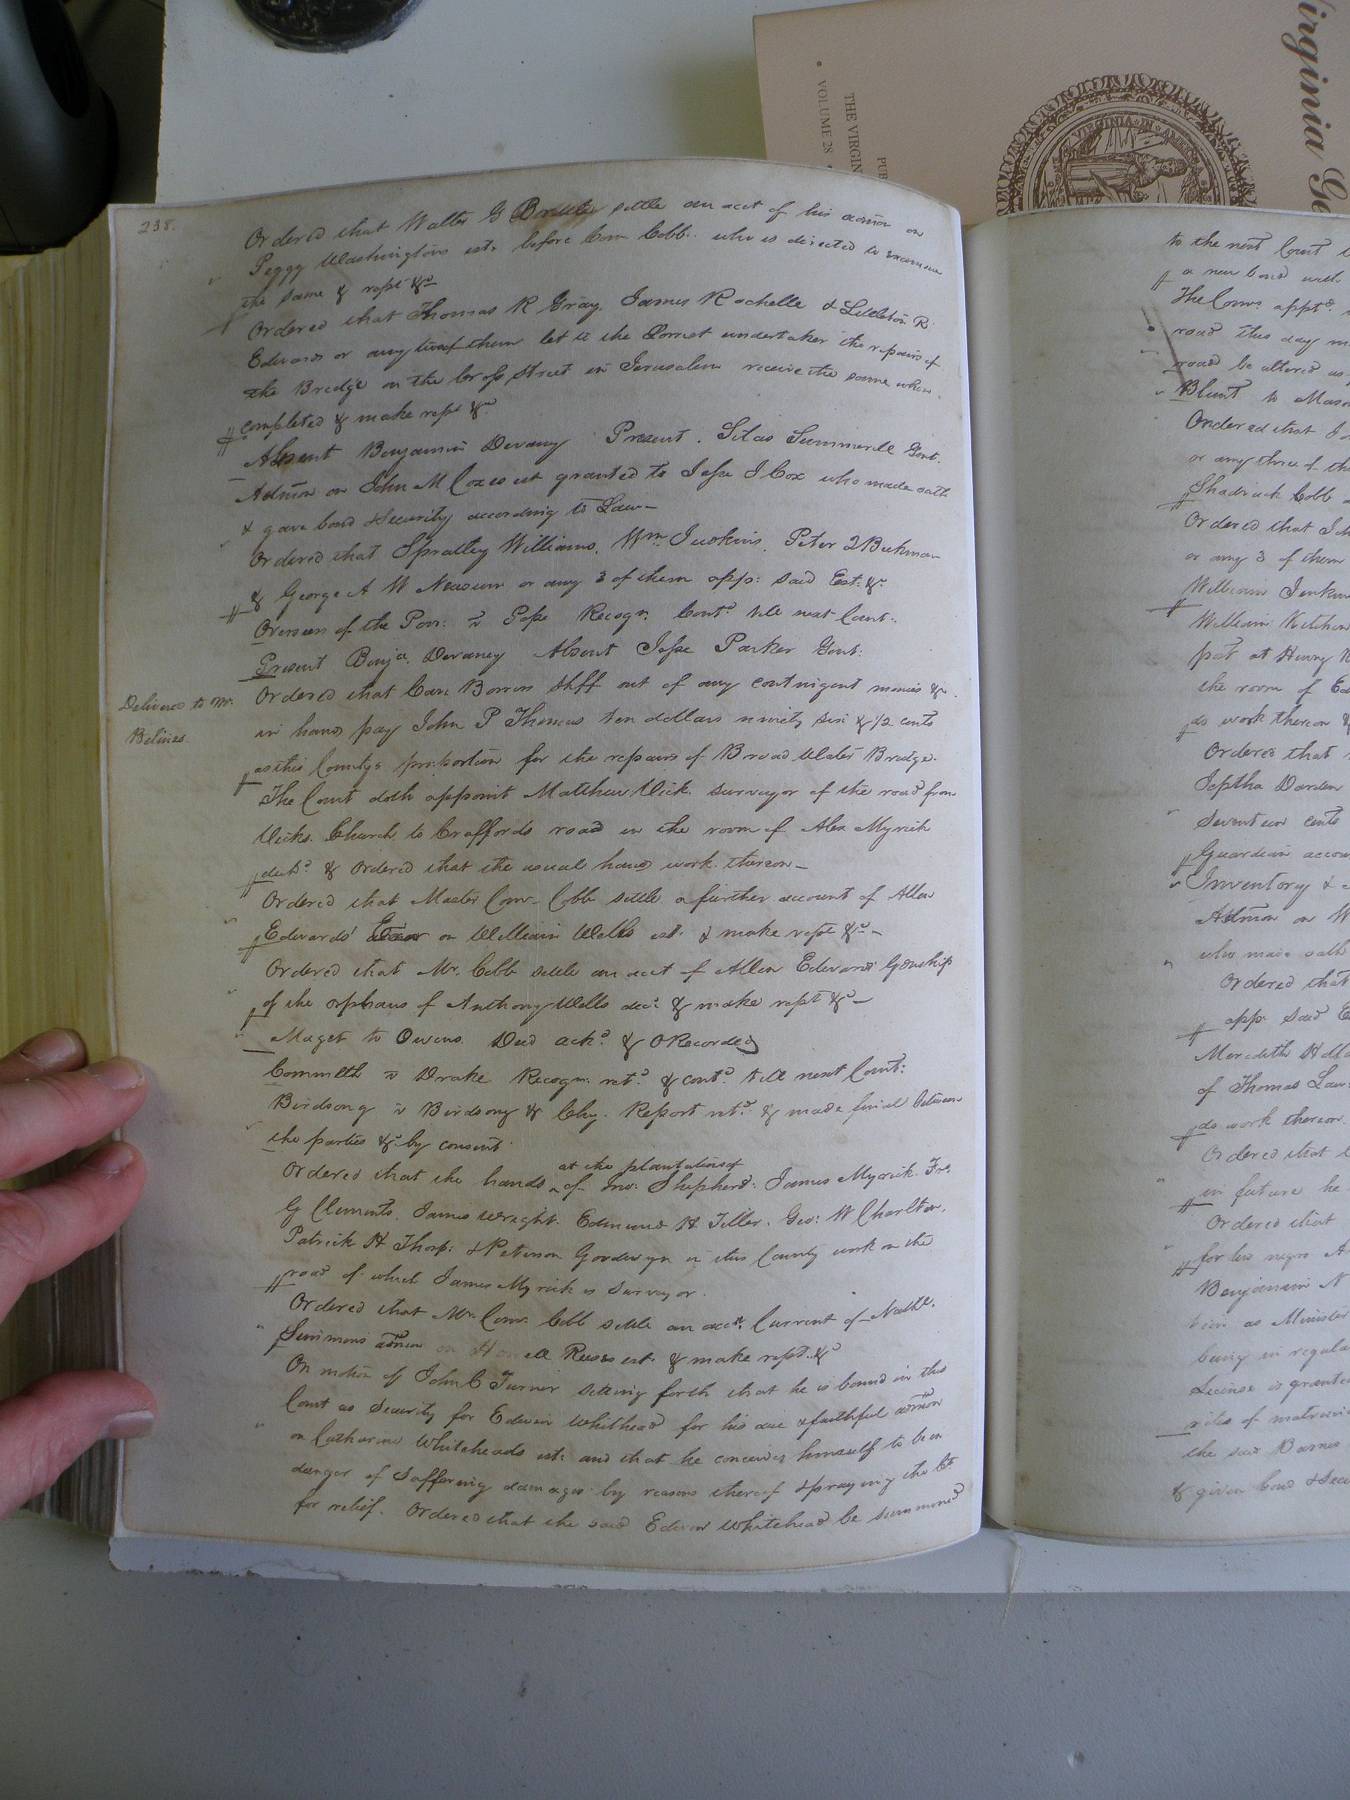 238.
Ordered that Walter G settle an acct of his admon on
Peggy Washingtons est. before Com Cobb. who is directed to examine
the same & rept &c
Ordered that Thomas R Gray, James Rochelle & Littleton R
Edwards or any two of them let to the lowest undertaker the repairs of
the Bridge on the Cross Street in Jerusalem receive the same when
completed & make rept &c
Absent Benjamin Devany Present. Silas Summerell Gent.
Admon on John M Coxes est granted to Jesse J Cox who made oath
& gave bond & Security according to Law—
Ordered that Spratley Williams, Wm Judkins, Peter
& George A W Newsum or any 3 of them app: said Est: &c
Overseers of the Poor: vs Pope Recogn. Contd till next Court.
Present Benja. Devaney Absent Jesse Parker Gent:
Delivered to Mr.
Ordered that Carr Bowers Shff out of any contingent monies &c
in hand pay John P Thomas ten dollars ninety six & 1/2 cents
as this Countys proportion for the repairs of Broad Water Bridge.
The Court doth appoint Matthew Vick surveyor of the road from
Vicks Church to Craffords road in the room of Alex Myrick
decd. & ordered that the usual hands work thereon—
Ordered that Master Com. Cobb settle a further account of Allen
Edwards' on William Wells est. & make rept &c—
Ordered that Mr. Cobb settle an acct of Allen Edwards Gdnship
of the orphans of Anthony Wells decd & make rept &c—
Maget to Owens Deed ackd. & ORecorded
Commlth vs Drake Recogn. retd. & contd. till next Court:
Birdsong vs Birdsong & Chy. Report retd. & made final between
the parties &c by consent
at the plantations of
Ordered that the hands of Jno: Shepherd, James Myrick
G Clements, James Wright, Edmund H Tiller, Geo: W Charlton,
Patrick H Thorp: & Peterson Goodwyn in this County work on the
road of which James Myrick is surveyor.
Ordered that Mr. Com. Cobb settle an acct. Current of Nathl.
Simmons admon on Howell Reeses est. & make rept. &c
On motion of John C Turner setting forth that he is bound in this
Court as Security for Edwin Whitehead for his due & faithful admon
on Catharine Whiteheads est: and that he conceives himself to be in
danger of Suffering damages by reasons thereof & praying the Ct
for relief. Ordered that the said Edwin Whitehead be summoned
to the next Court
a new bond with
The Coms apptd.
road this day
road be altered as
Blunt to
Ordered that
or any three of
Shadrack Cobb
Ordered that
or any 3 of them
William
William Kitchen
at Henry
the room of
do work thereon &
Ordered that
Jeptha Darden
Seventeen cents
Guardian
Inventory &
Admon on
who made oath
Ordered that
app. said
Meredith
of Thomas
do work thereon.
Ordered that
in future he
Ordered that
for his negro
Benjamin N
as Minister
being in regular
License is granted
rites of
the said Barnes
& given bond &
THE VIRGIN
VOLUME 28
PU
VIRGINIA
Virginia Ge